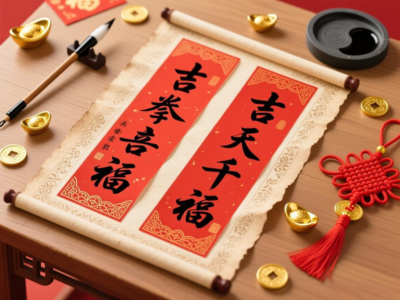 吉天千福
吉拳吾福